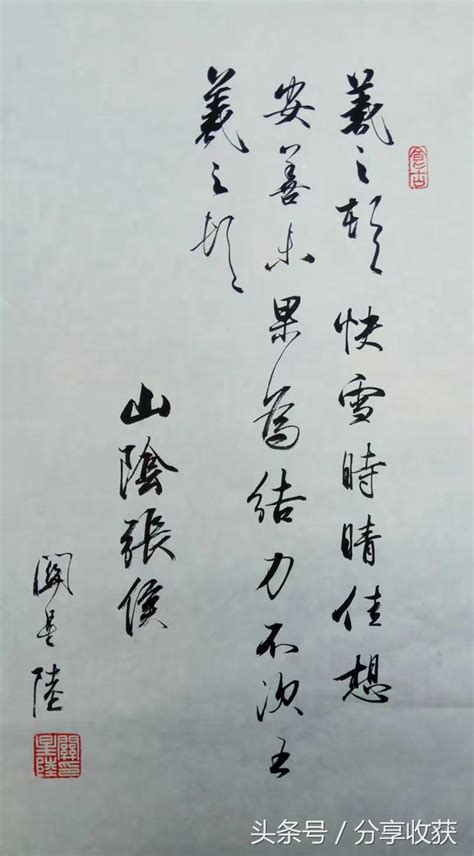 羲之頓首快雪時晴佳想
安善未果為結力不次王
羲之頓首
山陰張侯
關星陸
關印星陸
头条号 / 分享收获